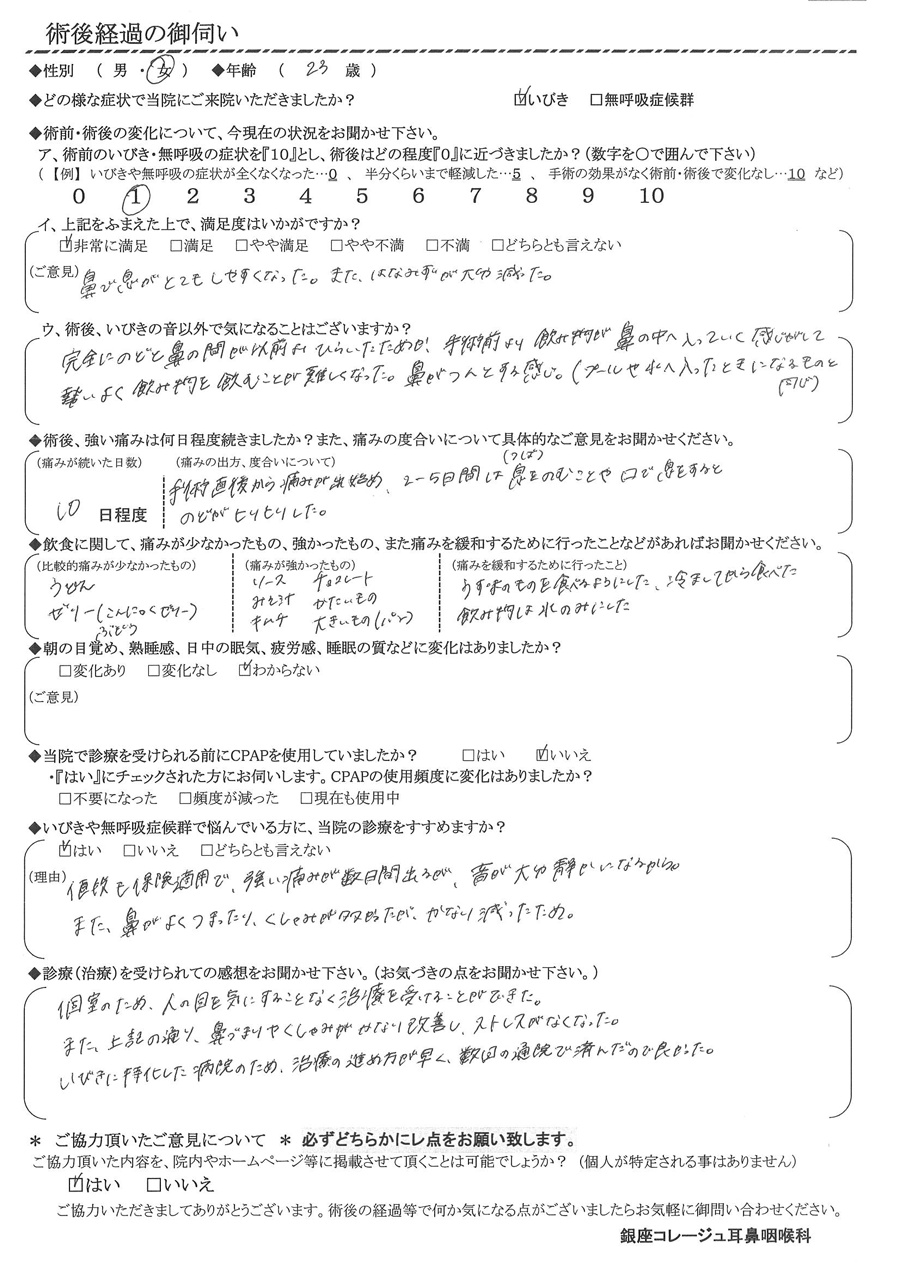 術後経過の御伺い
◆性別 （ 男 ・ 女 ） ◆年齢 （ 23 歳 ）
◆どの様な症状で当院にご来院いただきましたか？ ☑いびき □無呼吸症候群
◆術前・術後の変化について、今現在の状況をお聞かせ下さい。
ア、術前のいびき・無呼吸の症状を『10』とし、術後はどの程度『0』に近づきましたか？（数字を○で囲んで下さい）
（【例】 いびきや無呼吸の症状が全くなくなった…0 、 半分くらいまで軽減した…5 、 手術の効果がなく術前・術後で変化なし…10 など）
0 1 2 3 4 5 6 7 8 9 10
イ、上記をふまえた上で、満足度はいかがですか？
☑非常に満足 □満足 □やや満足 □やや不満 □不満 □どちらとも言えない
（ご意見） 鼻で息がとてもしやすくなった。また、はなみずが大分減った。
ウ、術後、いびきの音以外で気になることはございますか？
完全にのどと鼻の間が以前よりひらいたためか、手術前より飲み物が鼻の中へ入っていく感じがして
勢いよく飲み物を飲むことが難しくなった。鼻がつんとする感じ。（プールや水へ入ったときになるものと
同じ）
◆術後、強い痛みは何日程度続きましたか？また、痛みの度合いについて具体的なご意見をお聞かせください。
（痛みが続いた日数） （痛みの出方、度合いについて） （つば）
手術直後から痛みが出始め、2-5日間は をのむことや口で息をすると
10 日程度 のどがヒリヒリした。
◆飲食に関して、痛みが少なかったもの、強かったもの、また痛みを緩和するために行ったことなどがあればお聞かせください。
（比較的痛みが少なかったもの） （痛みが強かったもの） （痛みを緩和するために行ったこと）
うどん ソース チョコレート うす味のものを食べるようにした、冷ましてから食べた
ゼリー（こんにゃくゼリー） みそ汁 かたいもの 飲み物は水のみにした
ぶどう キムチ 大きいもの（パン）
◆朝の目覚め、熟睡感、日中の眠気、疲労感、睡眠の質などに変化はありましたか？
□変化あり □変化なし ☑わからない
（ご意見）
◆当院で診療を受けられる前にCPAPを使用していましたか？ □はい ☑いいえ
・『はい』にチェックされた方にお伺いします。CPAPの使用頻度に変化はありましたか？
□不要になった □頻度が減った □現在も使用中
◆いびきや無呼吸症候群で悩んでいる方に、当院の診療をすすめますか？
☑はい □いいえ □どちらとも言えない
（理由） 値段も保険適用で、強い痛みが数日間出るが、音が大分静かになるから。
また、鼻がよくつまったり、くしゃみが多かったが、かなり減ったため。
◆診療（治療）を受けられての感想をお聞かせ下さい。（お気づきの点をお聞かせ下さい。）
個室のため、人の目を気にすることなく治療を受けることができた。
また、上記の通り、鼻づまりやくしゃみがかなり改善し、ストレスがなくなった。
いびきに特化した病院のため、治療の進め方が早く、数回の通院で済んだので良かった。
＊ ご協力頂いたご意見について ＊ 必ずどちらかにレ点をお願い致します。
ご協力頂いた内容を、院内やホームページ等に掲載させて頂くことは可能でしょうか？ （個人が特定される事はありません）
☑はい □いいえ
ご協力いただきましてありがとうございます。術後の経過等で何か気になる点がございましたらお気軽に御問い合わせください。
銀座コレージュ耳鼻咽喉科